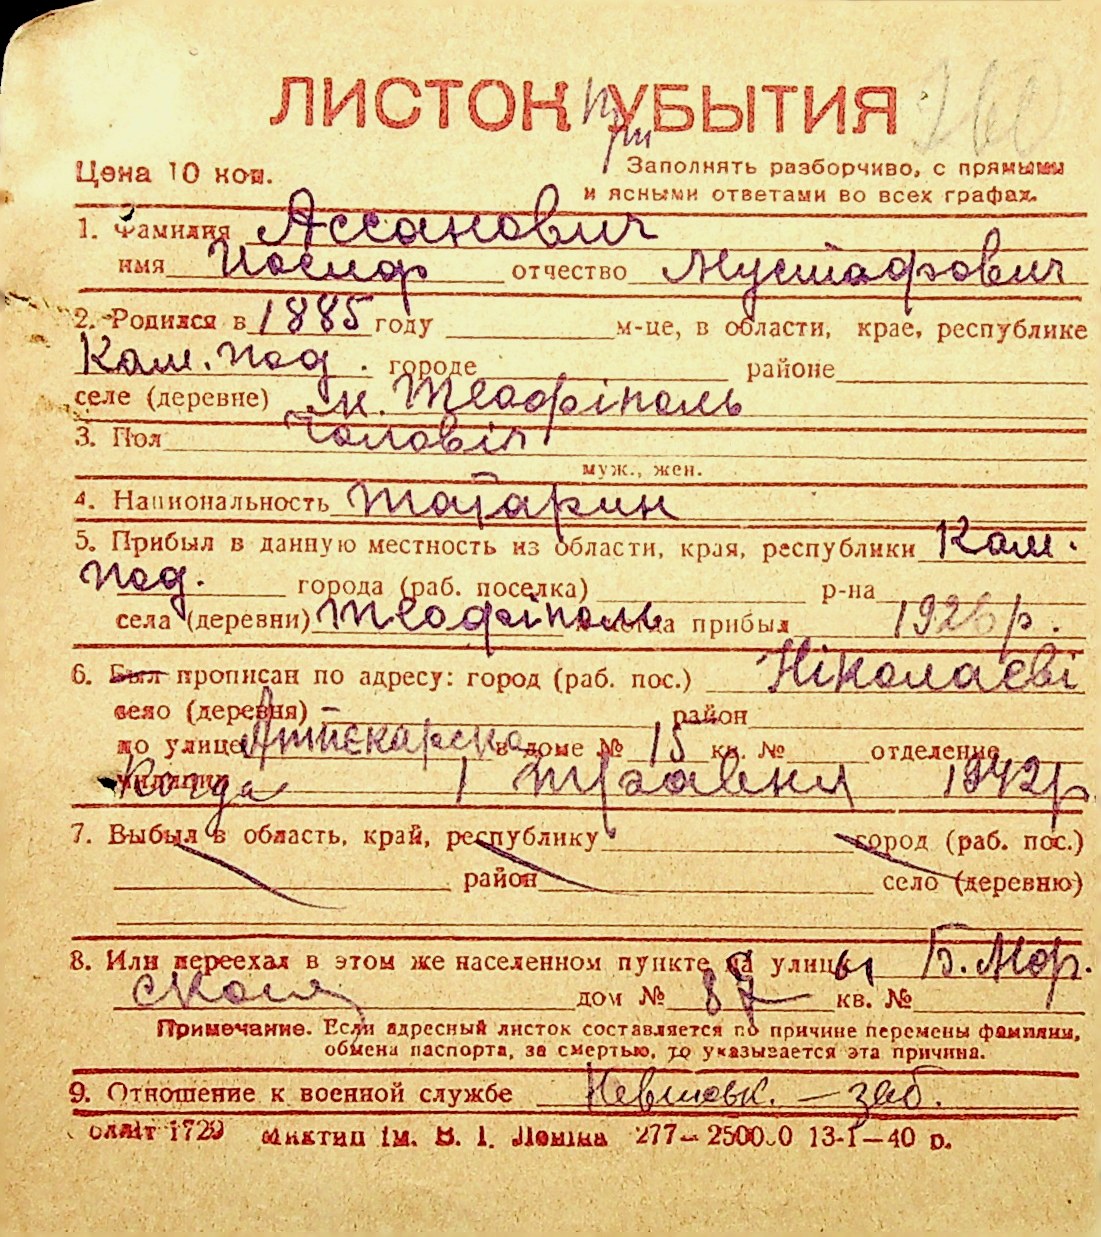 ЛИСТОК УБЫТИЯ 260
при
Цена 10 коп. Заполнять разборчиво, с прямыми
и ясными ответами во всех графах.
1. Фамилия Ассанович
имя Иосиф отчество Мустафович
2. Родился в 1885 году м-це, в области, крае, республике
Кам. Под. городе районе
селе (деревне) м. Теофіполь
3. Пол Чоловіч
муж., жен.
4. Национальность татарин
5. Прибыл в данную местность из области, края, республики Кам.
Под. города (раб. поселка) р-на
села (деревни) Теофіполь когда прибыл 1926 р.
6. Был прописан по адресу: город (раб. пос.) Ніколаєві
село (деревня) район
по улице Аптекарска в доме № 15 кв. № отделение
милиции Когда 1 травня 1942р.
7. Выбыл в область, край, республику город (раб. пос.)
район село (деревню)
8. Или переехал в этом же населенном пункте с улицы Б. Мор.
ская дом № 87 кв. №
Примечание. Если адресный листок составляется по причине перемены фамилии,
обмена паспорта, за смертью, то указывается эта причина.
9. Отношение к военной службе Невійськ. – заб.
Облліт 1729 Миктип ім. В. І. Леніна 277— 25000.0 13-1—40 р.